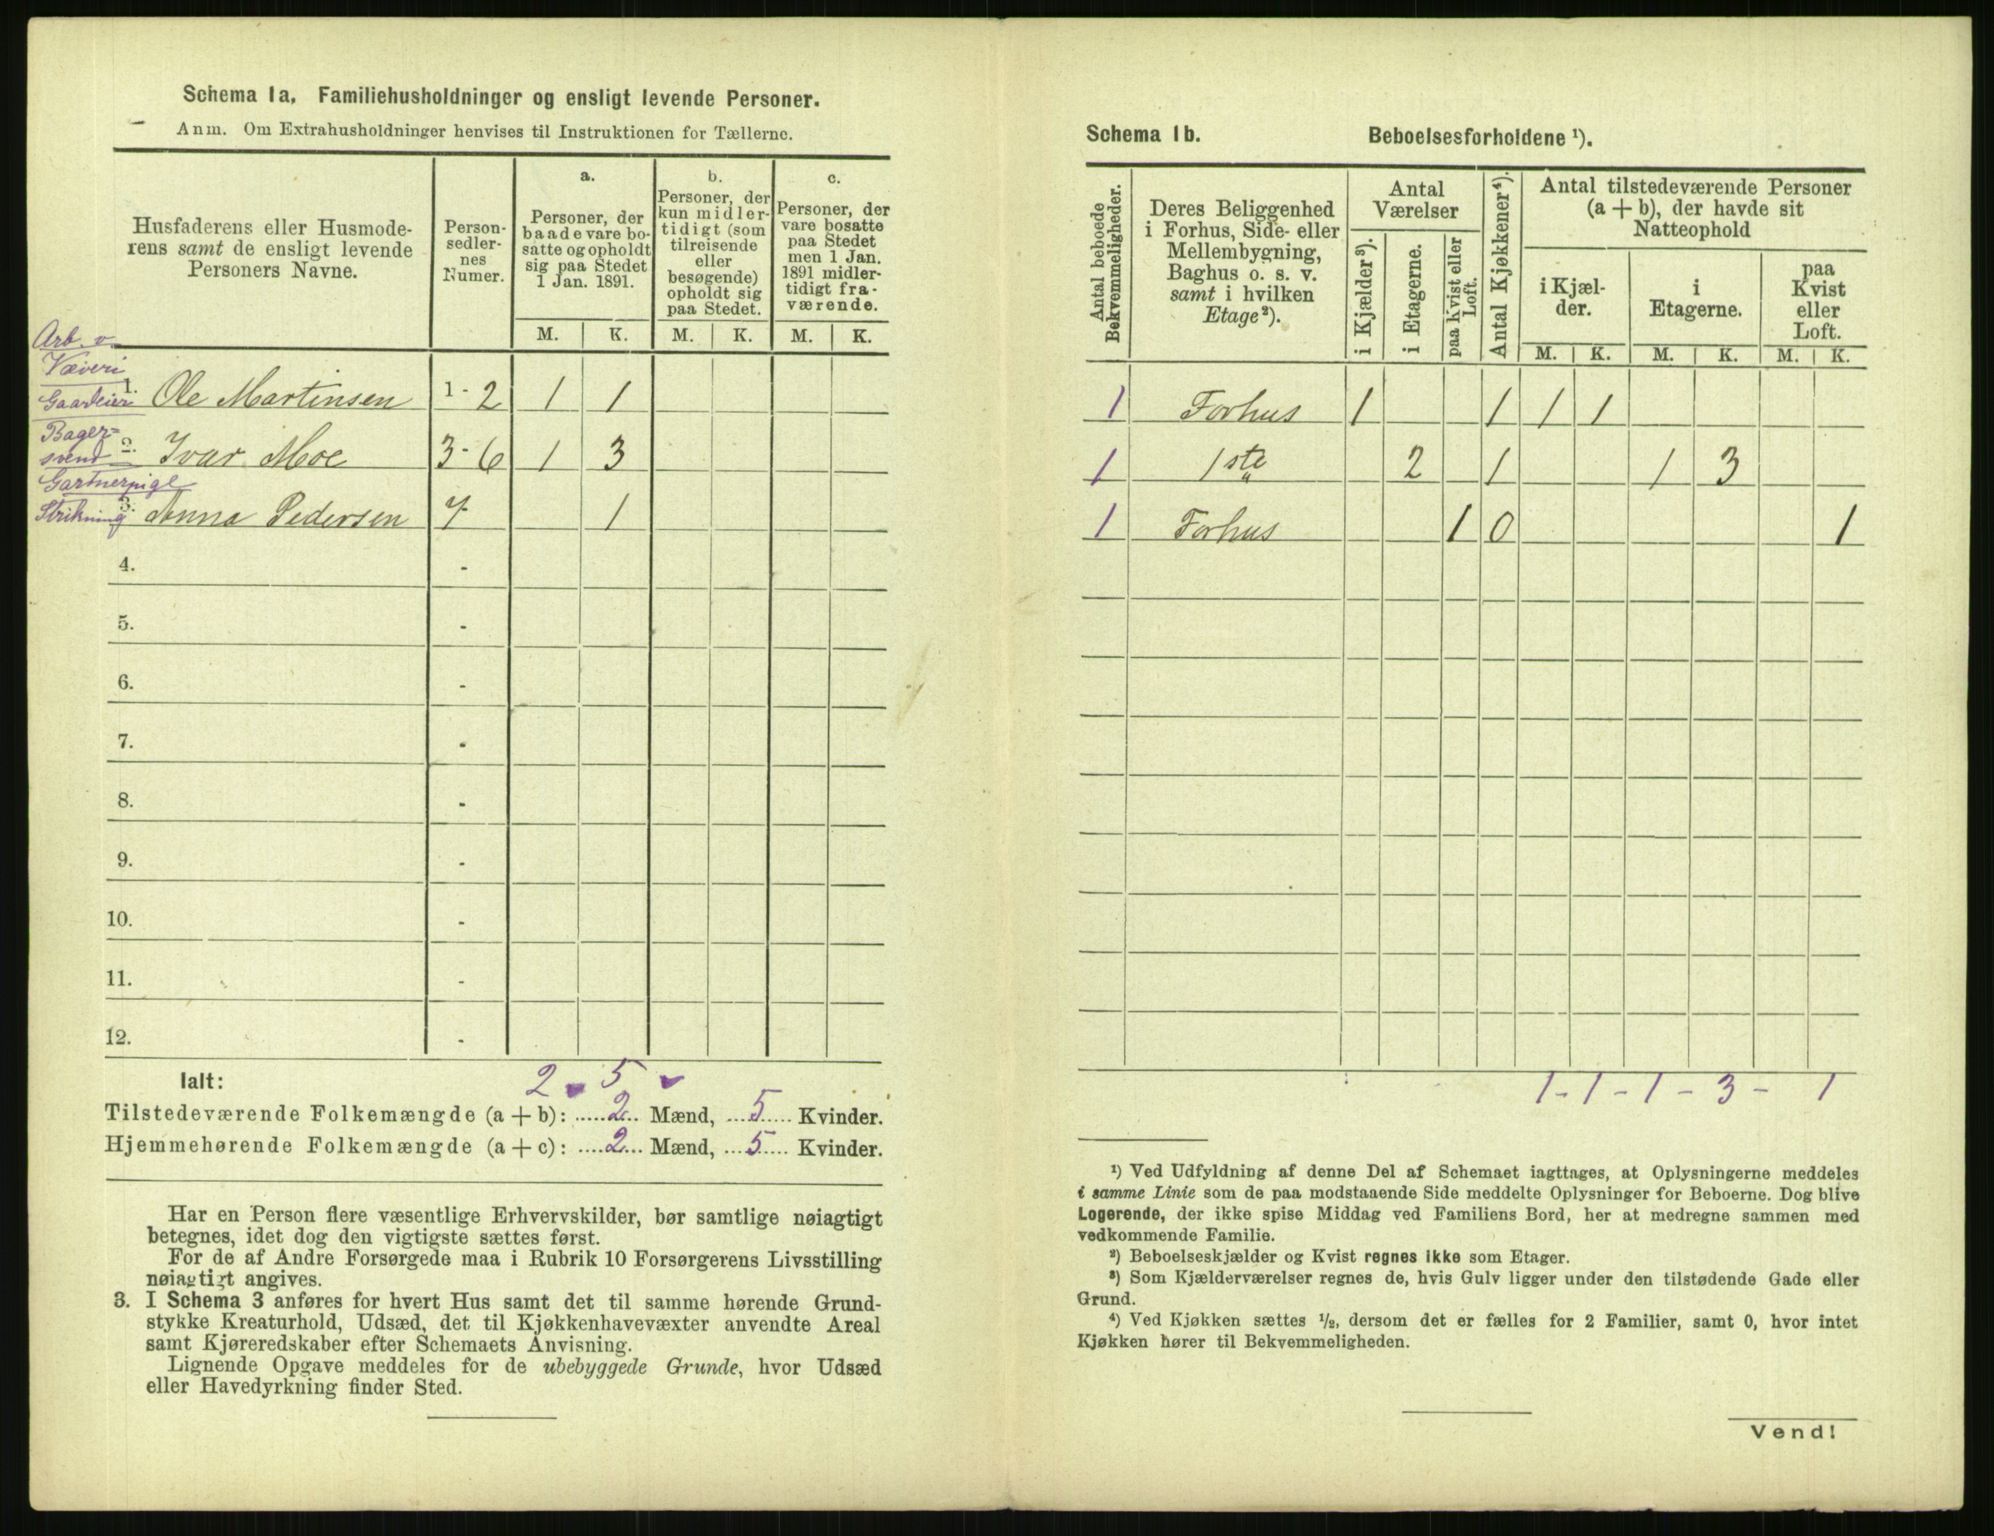 Schema 1a. Familiehusholdninger og ensligt levende Personer.
Anm. Om Extrahusholdninger henvises til Instruktionen for Tællerne.
Husfaderens eller Husmoderens samt de ensligt levende Personers Navne.
Person-sedlernes Numer.
a. Personer, der baade vare bosatte og opholdt sig paa Stedet 1 Jan. 1891.
b. Personer, der kun midlertidigt (som tilreisende eller besøgende) opholdt sig paa Stedet.
c. Personer, der vare bosatte paa Stedet men 1 Jan. 1891 midlertidigt fraværende.
M. K. M. K. M. K.
Arb. v.
Væveri
Gaardeier
1. Ole Martinsen 1-2 1 1
Bager-
svend
2. Ivar Moe 3-6 1 3
Gartnerpige
Strikning
3. Anna Pedersen 7 1
4. -
5. -
6. -
7. -
8. -
9. -
10. -
11. -
12. -
Ialt: 2 5
Tilstedeværende Folkemængde (a + b): 2 Mænd, 5 Kvinder.
Hjemmehørende Folkemængde (a + c): 2 Mænd, 5 Kvinder.
Har en Person flere væsentlige Erhvervskilder, bør samtlige nøiagtigt
betegnes, idet dog den vigtigste sættes først.
For de af Andre Forsørgede maa i Rubrik 10 Forsørgerens Livsstilling
nøiagtigt angives.
3. I Schema 3 anføres for hvert Hus samt det til samme hørende Grund-
stykke Kreaturhold, Udsæd, det til Kjøkkenhavevæxter anvendte Areal
samt Kjøreredskaber efter Schemaets Anvisning.
Lignende Opgave meddeles for de ubebyggede Grunde, hvor Udsæd
eller Havedyrkning finder Sted.
Schema 1b. Beboelsesforholdene ¹).
Antal beboede Bekvemmeligheder.
Deres Beliggenhed i Forhus, Side- eller Mellembygning, Baghus o. s. v. samt i hvilken Etage²).
Antal Værelser
i Kjælder³).
i Etagerne.
paa Kvist eller Loft.
Antal Kjøkkener⁴).
Antal tilstedeværende Personer (a + b), der havde sit Natteophold
i Kjælder.
i Etagerne.
paa Kvist eller Loft.
M. K. M. K. M. K.
1 Forhus 1 1 1 1
1 1ste 2 1 1 3
1 Forhus 1 0 1
1 - 1 - 1 - 3 - 1
¹) Ved Udfyldning af denne Del af Schemaet iagttages, at Oplysningerne meddeles
i samme Linie som de paa modstaaende Side meddelte Oplysninger for Beboerne. Dog blive
Logerende, der ikke spise Middag ved Familiens Bord, her at medregne sammen med
vedkommende Familie.
²) Beboelseskjælder og Kvist regnes ikke som Etager.
³) Som Kjælderværelser regnes de, hvis Gulv ligger under den tilstødende Gade eller
Grund.
⁴) Ved Kjøkken sættes ½, dersom det er fælles for 2 Familier, samt 0, hvor intet
Kjøkken hører til Bekvemmeligheden.
Vend!